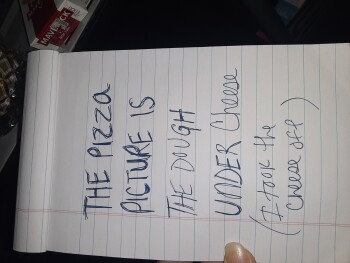 MAVERICK
THE PIZZA
PICTURE IS
THE DOUGH
UNDER Cheese
(I took the
cheese off)